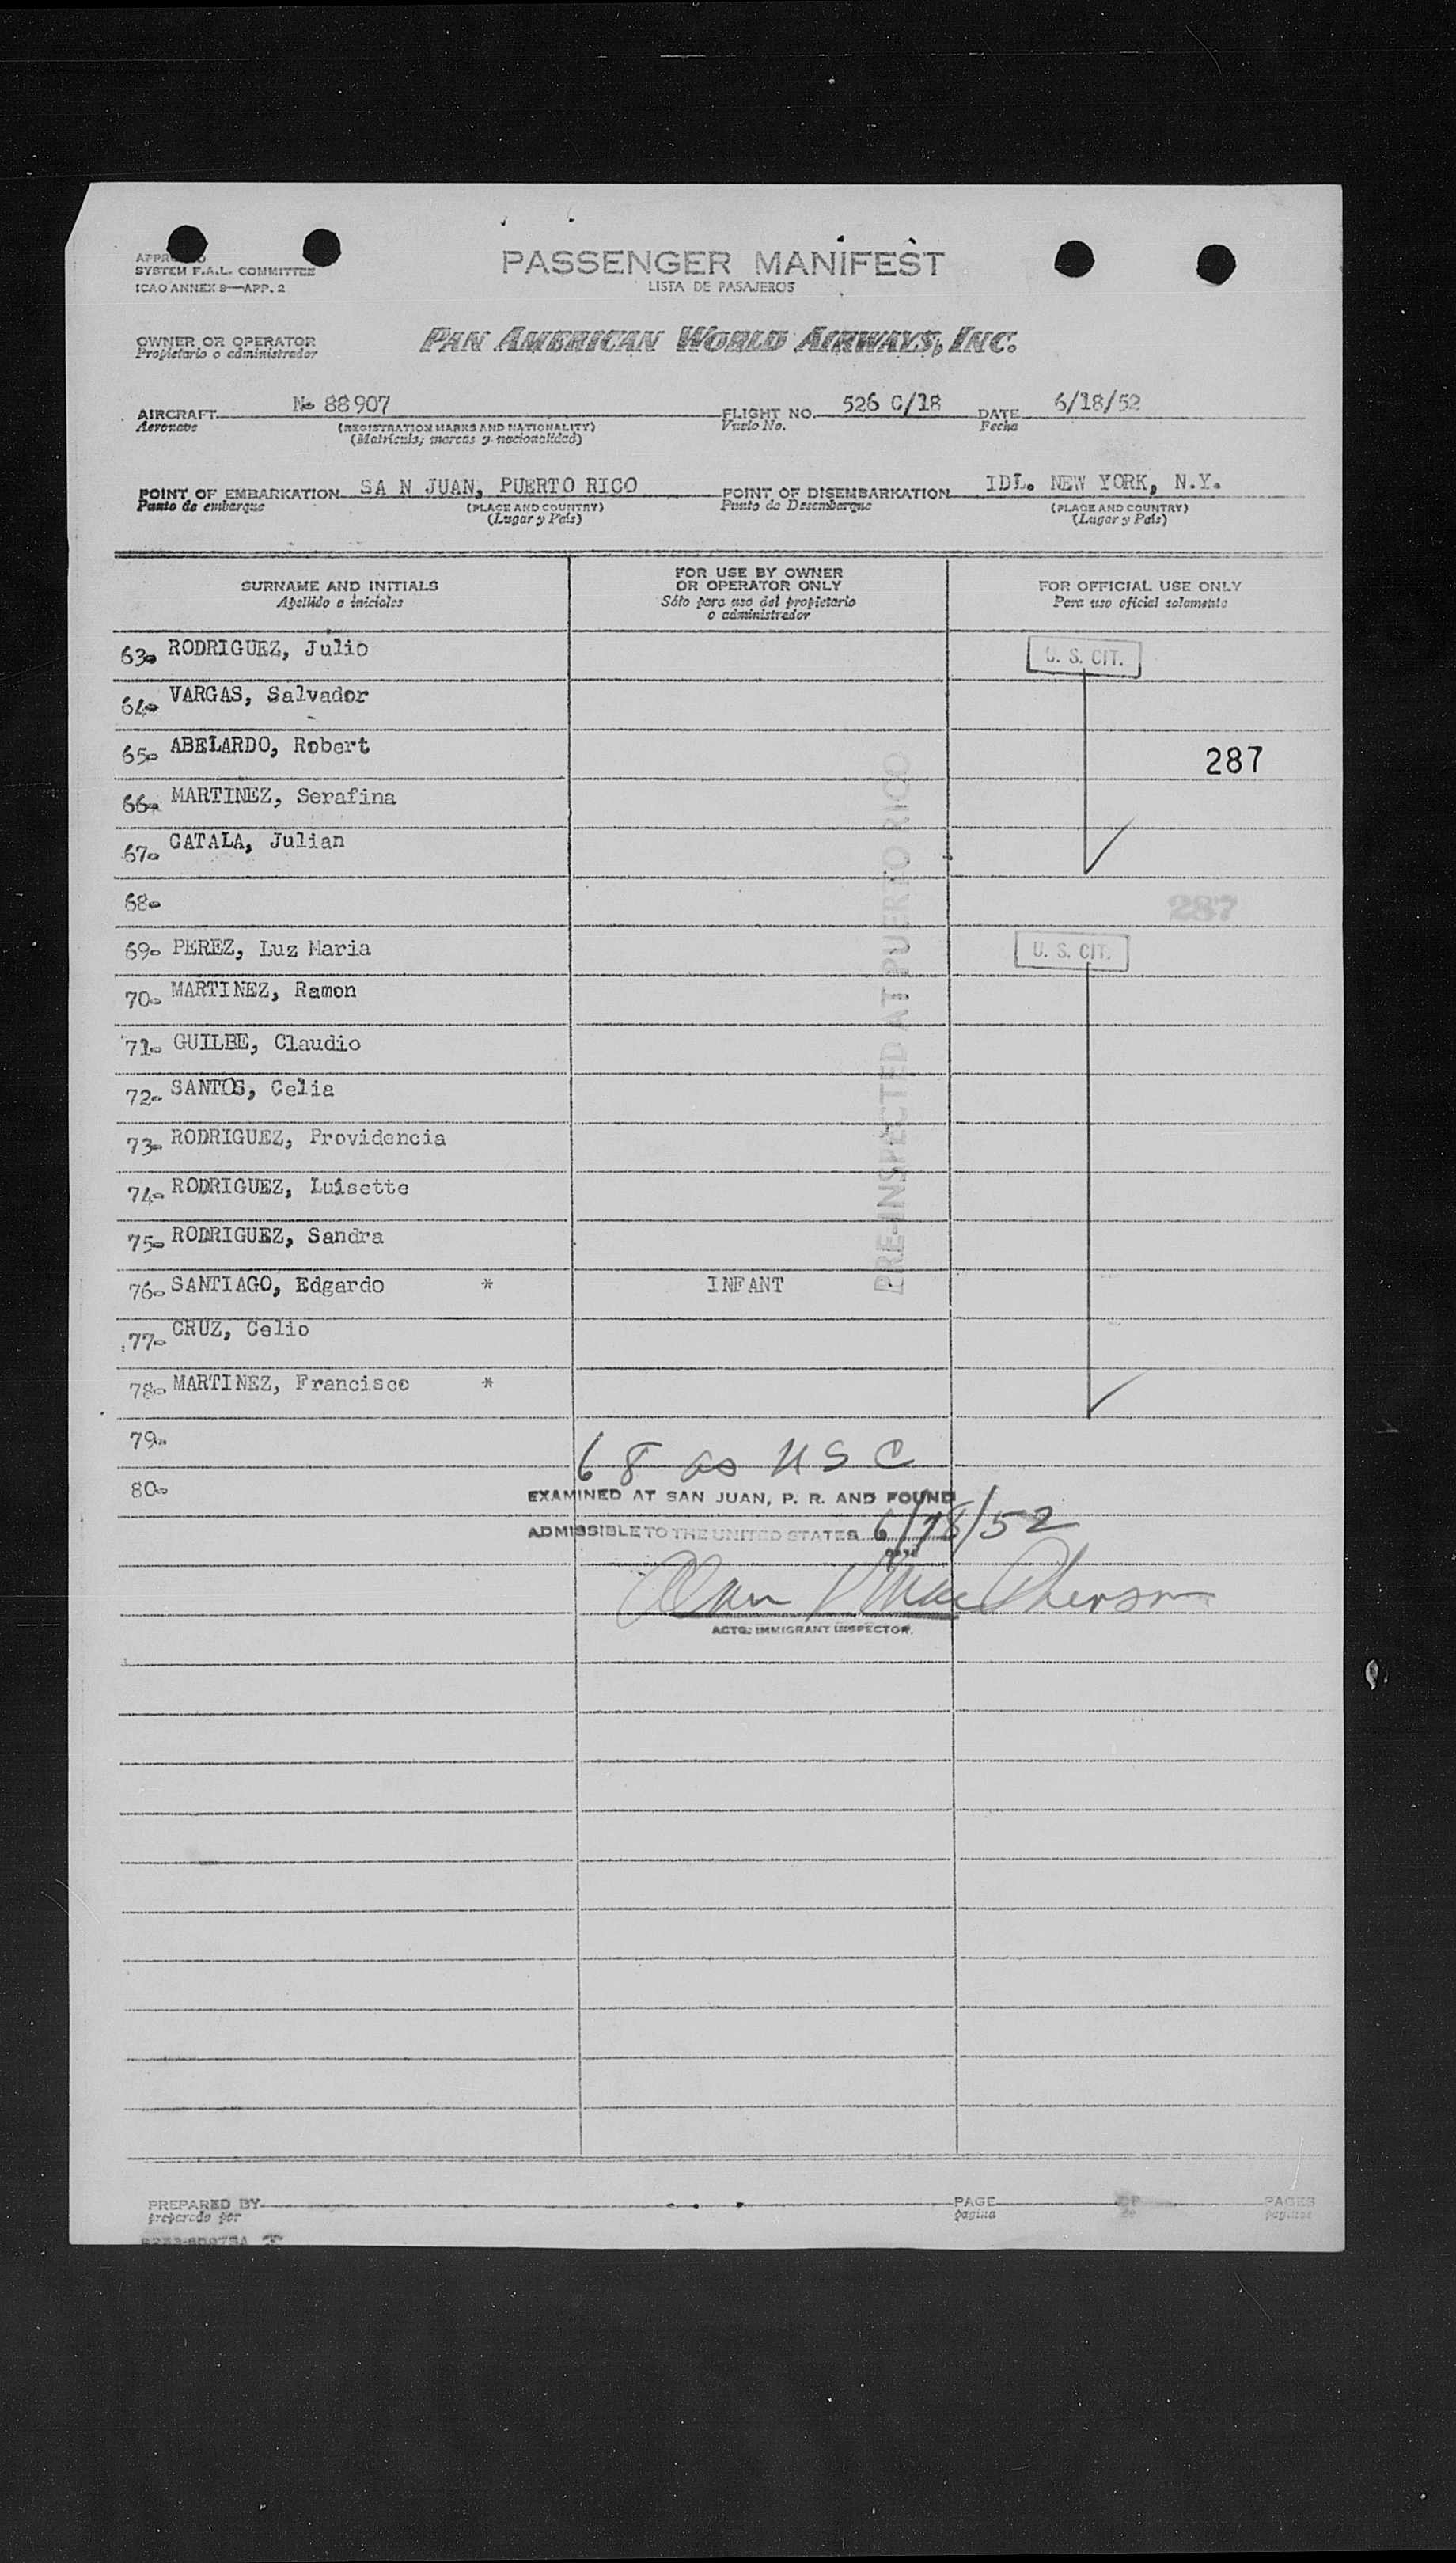 SYSTEM F.A.L. COMMITTEE
ICAO ANNEX 9—APP. 2
PASSENGER MANIFEST
LISTA DE PASAJEROS
OWNER OR OPERATOR
Propietario o administrador
PAN AMERICAN WORLD AIRWAYS, INC.
AIRCRAFT No 88907 FLIGHT NO. 526 C/18 DATE 6/18/52
Aeronave (REGISTRATION MARKS AND NATIONALITY) Vuelo No. Fecha
(Matrícula, marcas y nacionalidad)
POINT OF EMBARKATION SA N JUAN, PUERTO RICO POINT OF DISEMBARKATION IDL. NEW YORK, N.Y.
Punto de embarque (PLACE AND COUNTRY) Punto de Desembarque (PLACE AND COUNTRY)
(Lugar y País) (Lugar y País)
SURNAME AND INITIALS
Apellido e iniciales
FOR USE BY OWNER
OR OPERATOR ONLY
Sólo para uso del propietario
o administrador
FOR OFFICIAL USE ONLY
Para uso oficial solamente
63. RODRIGUEZ, Julio U. S. CIT.
64. VARGAS, Salvador
65. ABELARDO, Robert 287
66. MARTINEZ, Serafina
67. CATALA, Julian
68. 287
69. PEREZ, Luz Maria U. S. CIT.
70. MARTINEZ, Ramon
71. GUILBE, Claudio
72. SANTOS, Celia
73. RODRIGUEZ, Providencia
74. RODRIGUEZ, Luisette
75. RODRIGUEZ, Sandra
76. SANTIAGO, Edgardo * INFANT
77. CRUZ, Celio
78. MARTINEZ, Francisco *
79.
80.
PRE-INSPECTED AT PUERTO RICO
68 as USC
EXAMINED AT SAN JUAN, P. R. AND FOUND
ADMISSIBLE TO THE UNITED STATES 6/18/52
DATE
Alan MacPherson
ACTG. IMMIGRANT INSPECTOR.
PREPARED BY PAGE OF PAGES
preparado por página de páginas